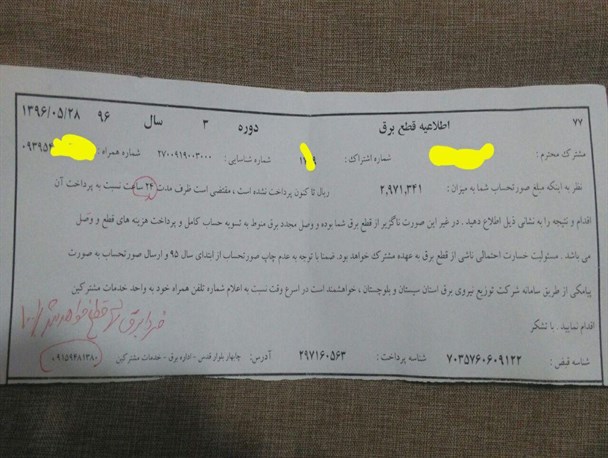 ۷۷ اطلاعیه قطع برق دوره ۳ سال ۹۶ ۱۳۹۶/۰۵/۲۸
مشترک محترم : شماره اشتراک : شماره شناسایی : ۲۷۰۰۹۱۹۰۰۳۰۰۰ شماره همراه : ۰۹۳۹۵۴
نظر به اینکه مبلغ صورتحساب شما به میزان : ۲,۹۷۱,۳۴۱ ریال تا کنون پرداخت نشده است ، مقتضی است ظرف مدت ۲۴ ساعت نسبت به پرداخت آن
اقدام و نتیجه را به نشانی ذیل اطلاع دهید . در غیر این صورت ناگزیر از قطع برق شما بوده و وصل مجدد برق منوط به تسویه حساب کامل و پرداخت هزینه های قطع و وصل
می باشد . مسئولیت خسارت احتمالی ناشی از قطع برق به عهده مشترک خواهد بود. ضمنا با توجه به عدم چاپ صورتحساب از ابتدای سال ۹۵ و ارسال صورتحساب به صورت
پیامکی از طریق سامانه شرکت توزیع نیروی برق استان سیستان و بلوچستان ، خواهشمند است در اسرع وقت نسبت به اعلام شماره تلفن همراه خود به واحد خدمات مشترکین
اقدام نمایید . با تشکر
فردا برق قطع خواهد شد
شناسه قبض : ۷۰۳۵۷۶۰۶۰۹۱۲۲ شناسه پرداخت : ۲۹۷۱۶۰۵۶۳ آدرس : چابهار بلوار قدس - اداره برق - خدمات مشترکین ۰۹۱۵۹۴۸۱۳۸۰